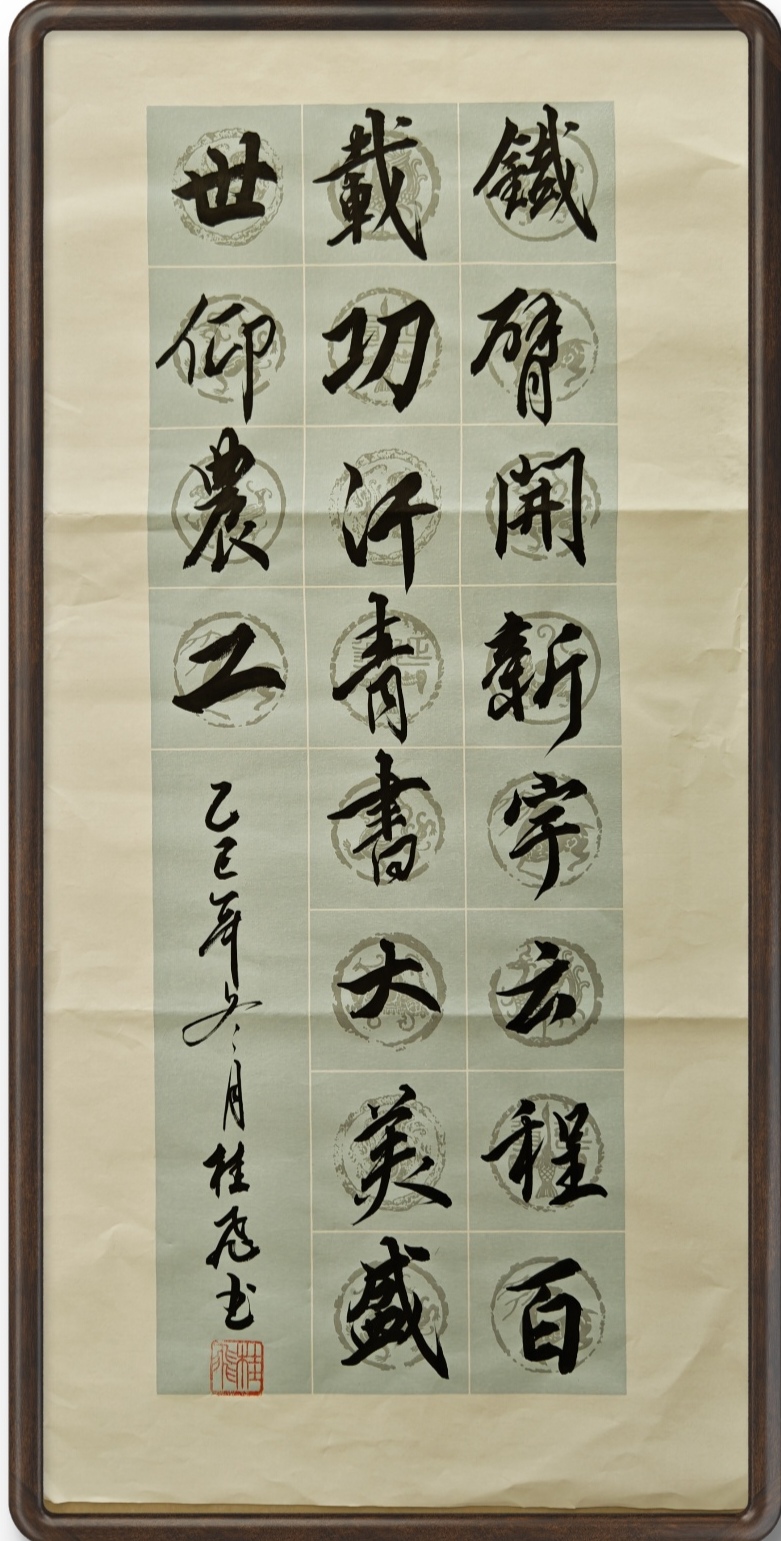 鐵臂開新宇云程百
載功汗青書大美盛
世仰農工
乙巳年冬月桂飛书
桂飛